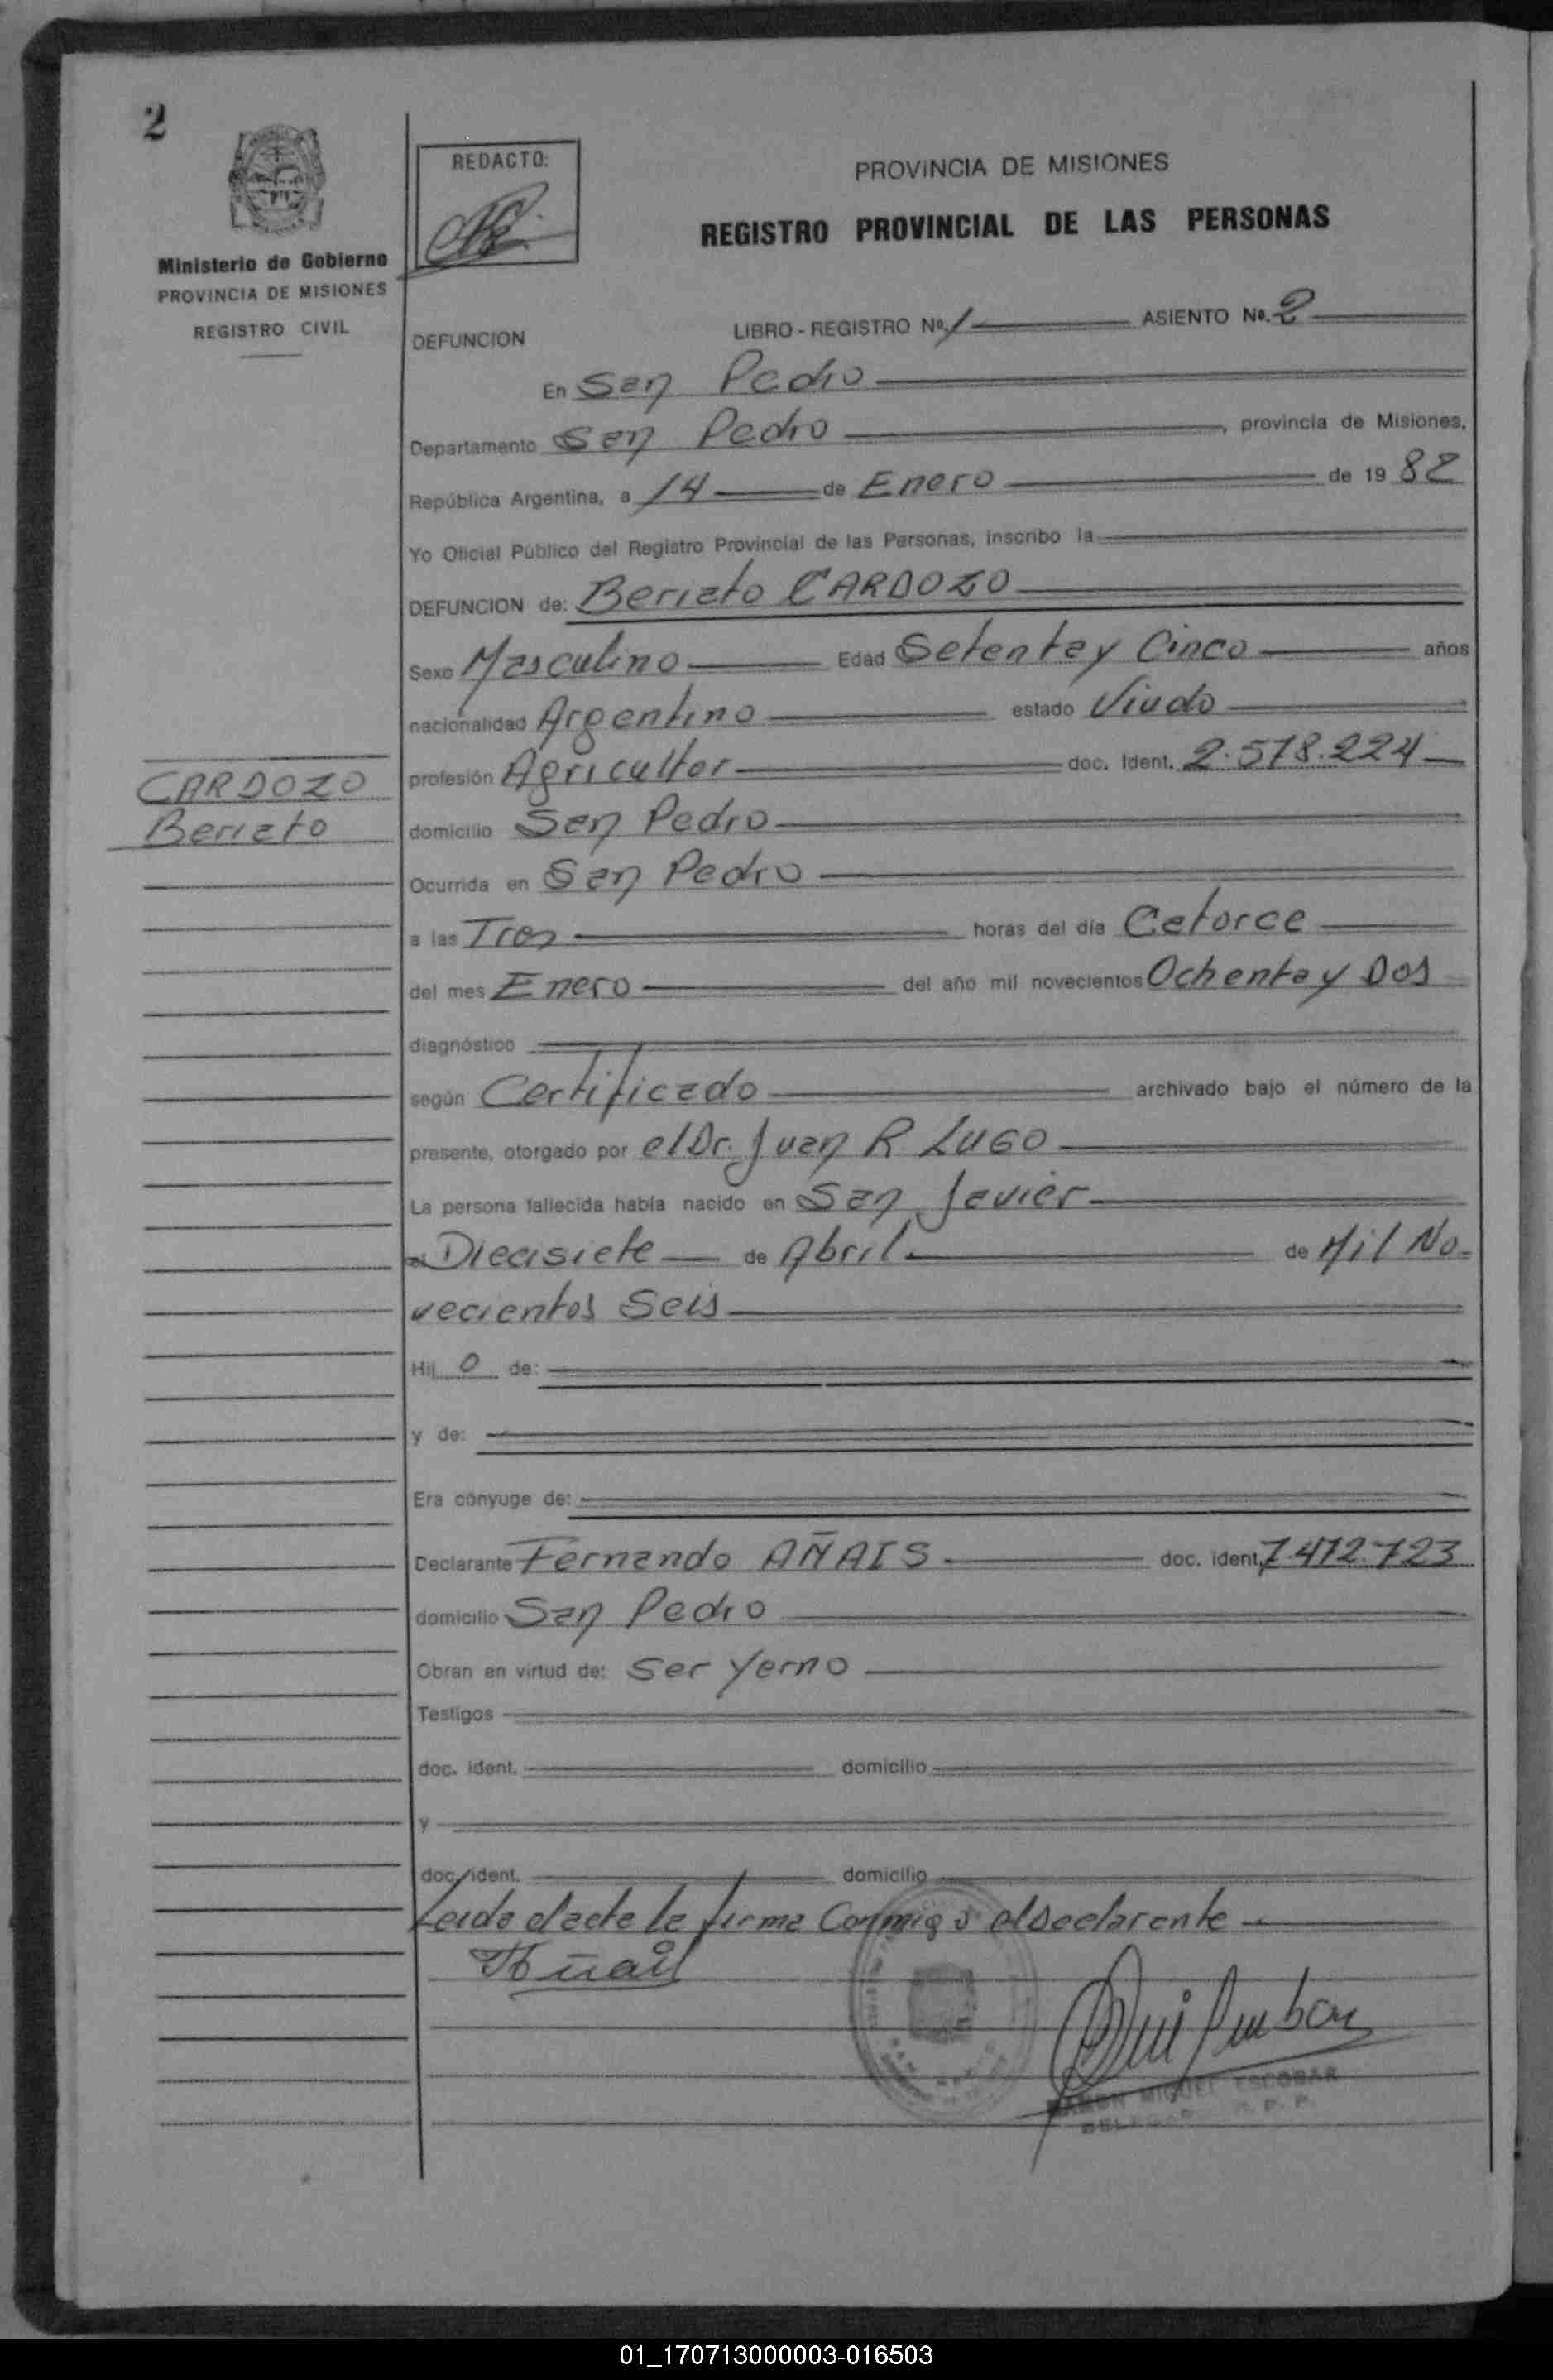 2
Ministerio de Gobierno
PROVINCIA DE MISIONES
REGISTRO CIVIL
REDACTO:
PROVINCIA DE MISIONES
REGISTRO PROVINCIAL DE LAS PERSONAS
DEFUNCION LIBRO - REGISTRO Nº. 1 ASIENTO Nº. 2
En San Pedro
Departamento San Pedro, provincia de Misiones,
República Argentina, a 14 de Enero de 19 82
Yo Oficial Público del Registro Provincial de las Personas, inscribo la
DEFUNCION de: Beriato CARDOZO
Sexo Masculino Edad Setenta y Cinco años
nacionalidad Argentino estado Viudo
CARDOZO
Beriato
profesión Agricultor doc. Ident. 2.578.224
domicilio San Pedro
Ocurrida en San Pedro
a las Tres horas del día Catorce
del mes Enero del año mil novecientos Ochenta y Dos
diagnóstico
según Certificado archivado bajo el número de la
presente, otorgado por el Dr. Juan R LUGO
La persona fallecida había nacido en San Javier
el Diecisiete de Abril de Mil No-
vecientos Seis
Hij o de:
y de:
Era cónyuge de:
Declarante Fernando AÑAIS doc. ident. 7.472.723
domicilio San Pedro
Obran en virtud de: Ser Yerno
Testigos
doc. ident. domicilio
y
doc. ident. domicilio
Leida el acta la firma Conmigo el Declarante
Añais
RAMON MIGUEL ESCOBAR
01_170713000003-016503